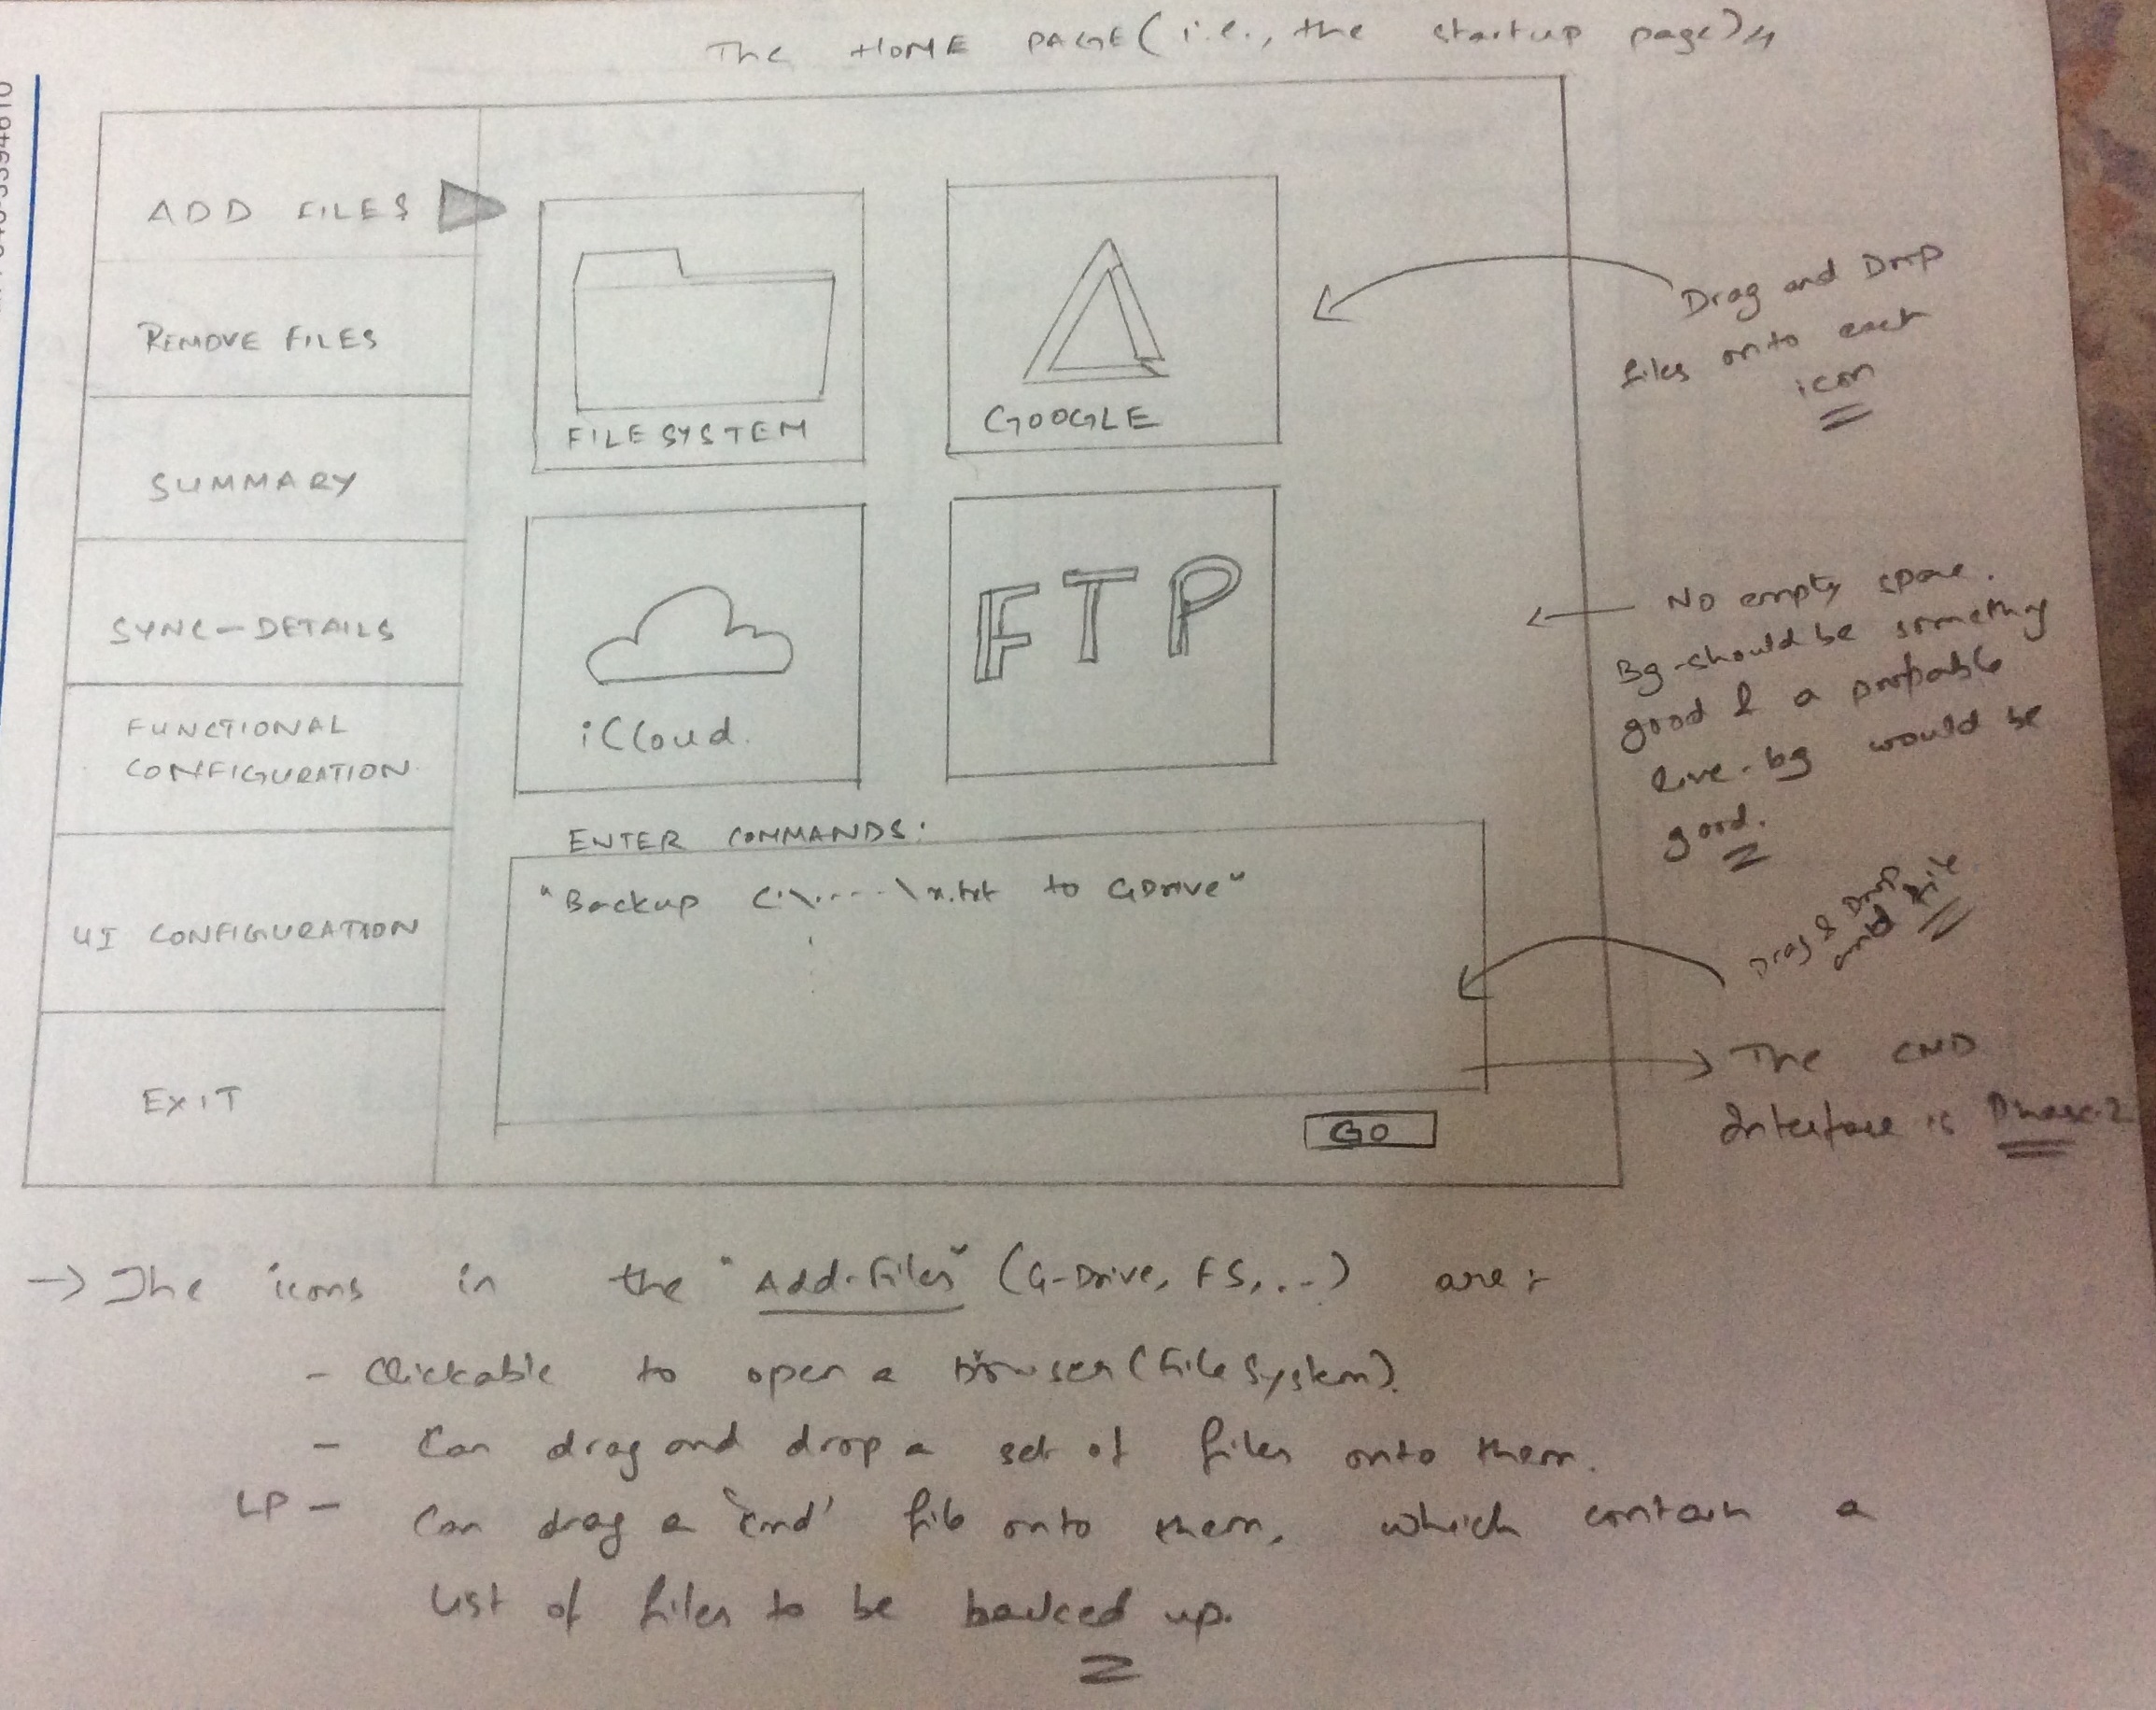 The HOME PAGE (i.e., the startup page) :-
ADD FILES
REMOVE FILES
SUMMARY
SYNC-DETAILS
FUNCTIONAL
CONFIGURATION
UI CONFIGURATION
EXIT
FILE SYSTEM
GOOGLE
iCloud
FTP
ENTER COMMANDS:
"Backup C:\...\n.txt to GDrive"
GO
Drag and Drop
files onto each
icon
No empty space.
Bg-should be something
good & a
live-bg would be
good.
Drag & Drop
file
The CMD
Interface is Phase-2
→ The icons in the "Add-Files" (G-Drive, FS, ...) are :-
- Clickable to open a browser (File System).
- Can drag and drop a set of files onto them.
- Can drag a 'cmd' file onto them, which contain a
list of files to be backed up.